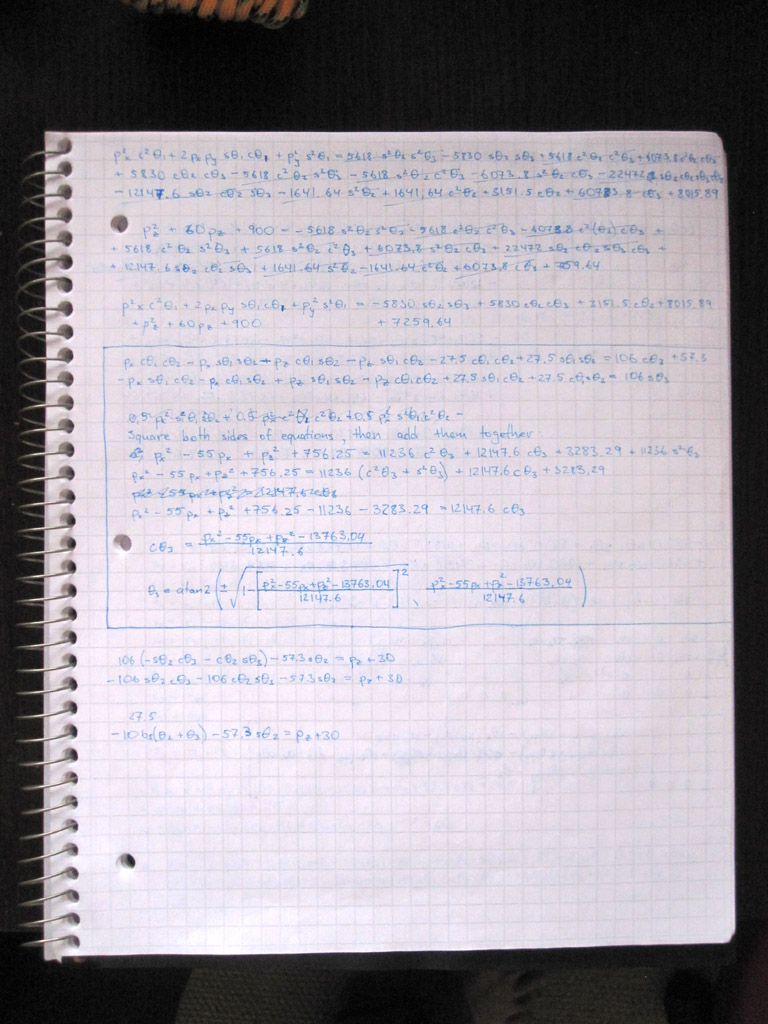 p²x c²θ₁ + 2 px py sθ₁ cθ₁ + p²y s²θ₁ = 5618 s²θ₂ s²θ₃ - 5830 sθ₂ sθ₃ + 5618 c²θ₂ c²θ₃ + 6073.8 c²θ₂ cθ₃
+ 5830 cθ₂ cθ₃ - 5618 c²θ₂ s²θ₃ - 5618 s²θ₂ c²θ₃ - 6073.8 s²θ₂ cθ₃ - 22472 sθ₂ cθ₂ sθ₃ cθ₃
- 12147.6 sθ₂ cθ₂ sθ₃ - 1641.64 s²θ₂ + 1641.64 c²θ₂ + 3151.5 cθ₂ + 6073.8 cθ₃ + 8015.89
p²z + 60 pz + 900 = - 5618 s²θ₂ s²θ₃ - 5618 c²θ₂ c²θ₃ - 6073.8 c²(θ₂) cθ₃ +
+ 5618 c²θ₂ s²θ₃ + 5618 s²θ₂ c²θ₃ + 6073.8 s²θ₂ cθ₃ + 22472 sθ₂ cθ₂ sθ₃ cθ₃ +
+ 12147.6 sθ₂ cθ₂ sθ₃ + 1641.64 s²θ₂ - 1641.64 c²θ₂ + 6073.8 cθ₃ + 7259.64
p²x c²θ₁ + 2 px py sθ₁ cθ₁ + p²y s²θ₁ = - 5830 sθ₂ sθ₃ + 5830 cθ₂ cθ₃ + 3151.5 cθ₂ + 8015.89
+ p²z + 60 pz + 900 + 7259.64
px cθ₁ cθ₂ - px sθ₁ sθ₂ + pz cθ₁ sθ₂ - pz sθ₁ cθ₂ - 27.5 cθ₁ cθ₂ + 27.5 sθ₁ sθ₂ = 106 cθ₃ + 57.3
- px sθ₁ cθ₂ - px cθ₁ sθ₂ + pz sθ₁ sθ₂ - pz cθ₁ cθ₂ + 27.5 sθ₁ cθ₂ + 27.5 cθ₁ sθ₂ = 106 sθ₃
Square both sides of equations, then add them together:
px² - 55 px + pz² + 756.25 = 11236 c²θ₃ + 12147.6 cθ₃ + 3283.29 + 11236 s²θ₃
px² - 55 px + pz² + 756.25 = 11236 (c²θ₃ + s²θ₃) + 12147.6 cθ₃ + 3283.29
px² - 55 px + pz² + 756.25 - 11236 - 3283.29 = 12147.6 cθ₃
cθ₃ = (px² - 55px + pz² - 13763.04) / 12147.6
θ₃ = atan2 (± √(1 - [(p²x - 55px + p²z - 13763.04) / 12147.6]²), (p²x - 55px + p²z - 13763.04) / 12147.6)
106 (- sθ₂ cθ₃ - cθ₂ sθ₃) - 57.3 sθ₂ = pz + 30
- 106 sθ₂ cθ₃ - 106 cθ₂ sθ₃ - 57.3 sθ₂ = pz + 30
27.5
- 106 s(θ₂ + θ₃) - 57.3 sθ₂ = pz + 30